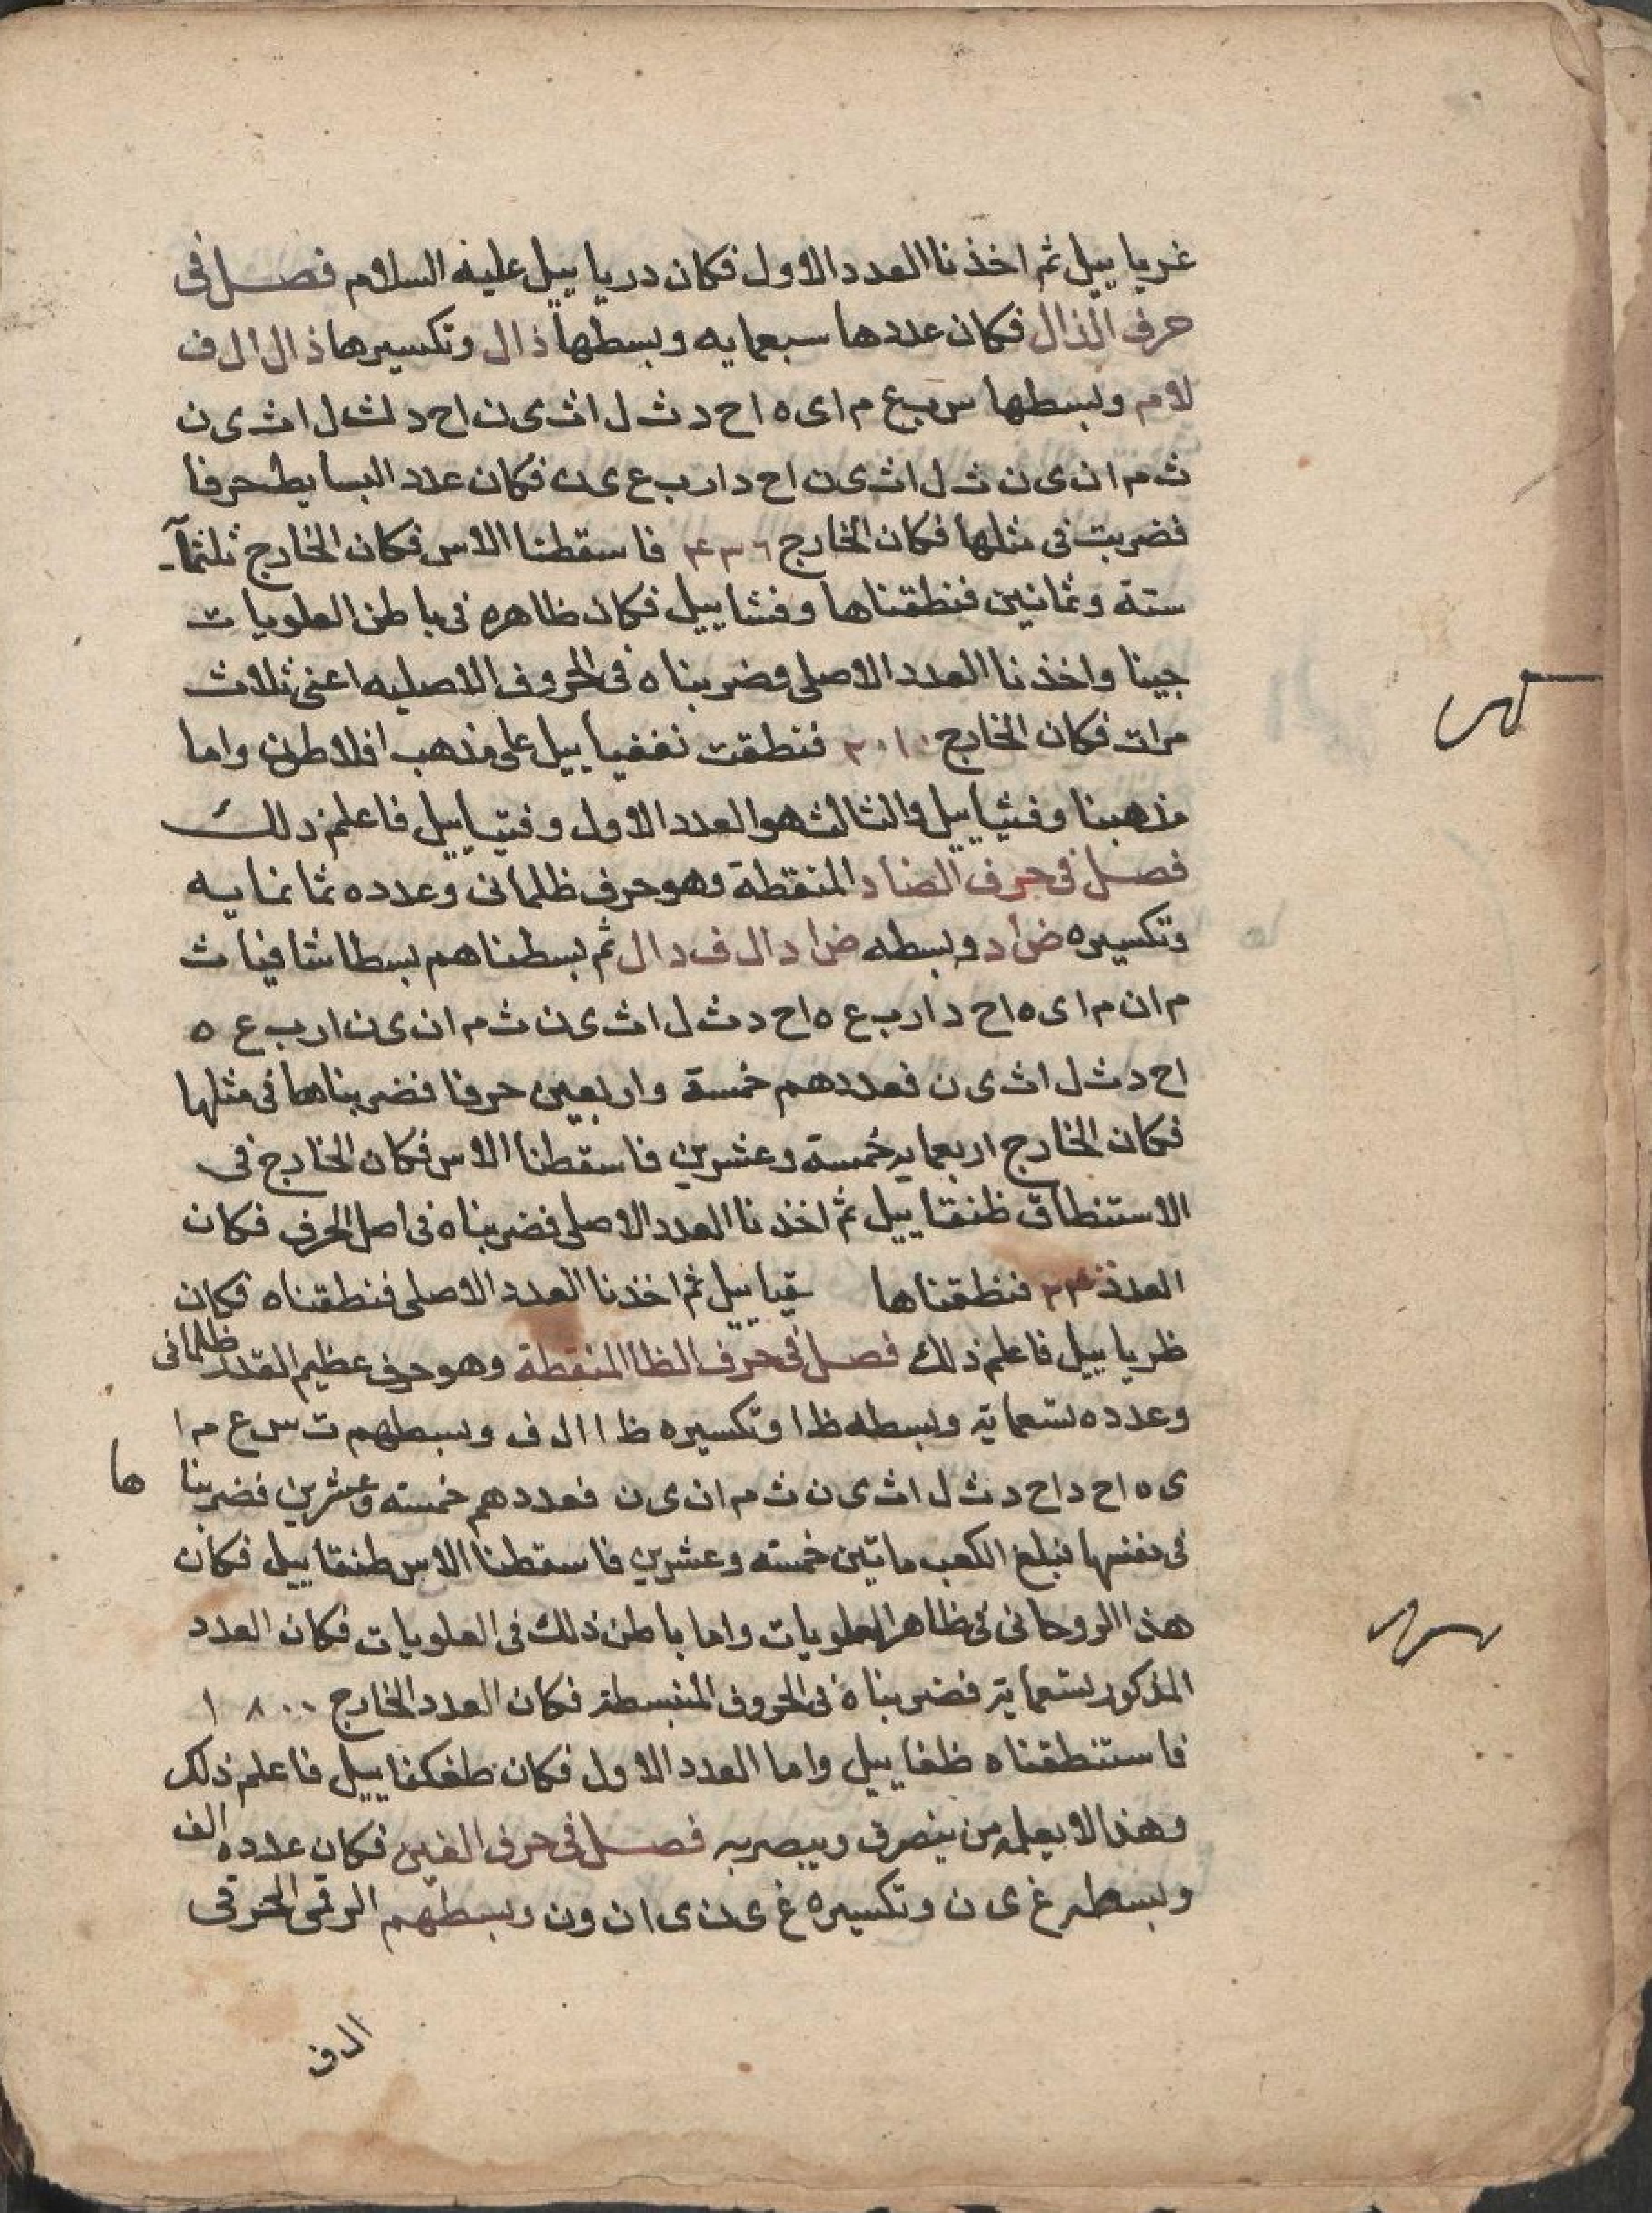 غريا ييل ثم اخذنا العدد الاول فكان دريا ييل عليه السلام فصل فى
حرف الذال فكان عددها سبعمايه وبسطها ذال وتكسيرها ذال ال ف
لام وبسطها س ب ع م ا ى ه ا ح د ث ل ا ث ى ن ا ح د ث ل ا ث ى ن
ث م ا ن ى ن ث ل ا ث ى ن ا ح د ا ر ب ع ى ن فكان عدد البسايط حرفا
فضربت فى مثلها فكان الخارج فاسقطنا الاس فكان الخارج ثلثمآ
ستة وثمانين فنطقناها وفشاييل فكان ظاهره فى باطن العلويات
جينا واخذنا العدد الاصلى وضربناه فى الحروف الاصليه اعنى ثلاث
مرات فكان الخارج فنطقت نغفيا ييل على مذهب افلاطون واما
مذهبنا وفثياييل والثالث هو العدد الاول وفتياييل فاعلم ذلك
فصل فى حرف الضاد المنقطة وهو حرف ظلمانى وعدده ثمانمايه
وتكسيره ضاد وبسطه ضاد ال ف دال ثم بسطناهم بسطا شافيا ث
م ا ن م ا ى ه ا ح د ا ر ب ع ه ا ح د ث ل ا ث ى ن ث م ا ن ى ن ا ر ب ع ه
ا ح د ث ل ا ث ى ن فعددهم خمسة واربعين حرفا فضربناها فى مثلها
فكان الخارج اربعمايه خمسة وعشرين فاسقطنا الاس فكان الخارج فى
الاستنطاق ظنقاييل ثم اخذنا العدد الاصلى فضربناه فى اصل الحرف فكان
العدد فنطقناها قيا ييل ثم اخذنا العدد الاصلى فنطقناه فكان
ظريا ييل فاعلم ذلك فصل فى حرف الظا المنقطة وهو حرف عظيم القدر ظلمانى
وعدده تسعماية وبسطه ظا وتكسيره ظ ا ال ف وبسطهم ت س ع م ا
ى ه ا ح د ا ح د ث ل ا ث ى ن ث م ا ن ى ن فعددهم خمسه وعشرين فضربناها
فى نفسها فبلغ الكعب ماتين خمسه وعشرين فاسقطنا الاس طنقاييل فكان
هذا الروحانى فى ظاهر العلويات واما باطن ذلك فى العلويات فكان العدد
المذكور تسعماية فضربناه فى الحروف المنبسطة فكان العدد الخارج ١٨٠٠
فاستنطقناه ظغاييل واما العدد الاول فكان طغكفاييل فاعلم ذلك
وهذا لا يعلمه من يتصرف ويبصر به فصل فى حرف الغين فكان عدده الف
وبسطه غ ى ن وتكسيره غ ى ن ى ا ن و ن وبسطهم الرقمى الحرفى
ال ف